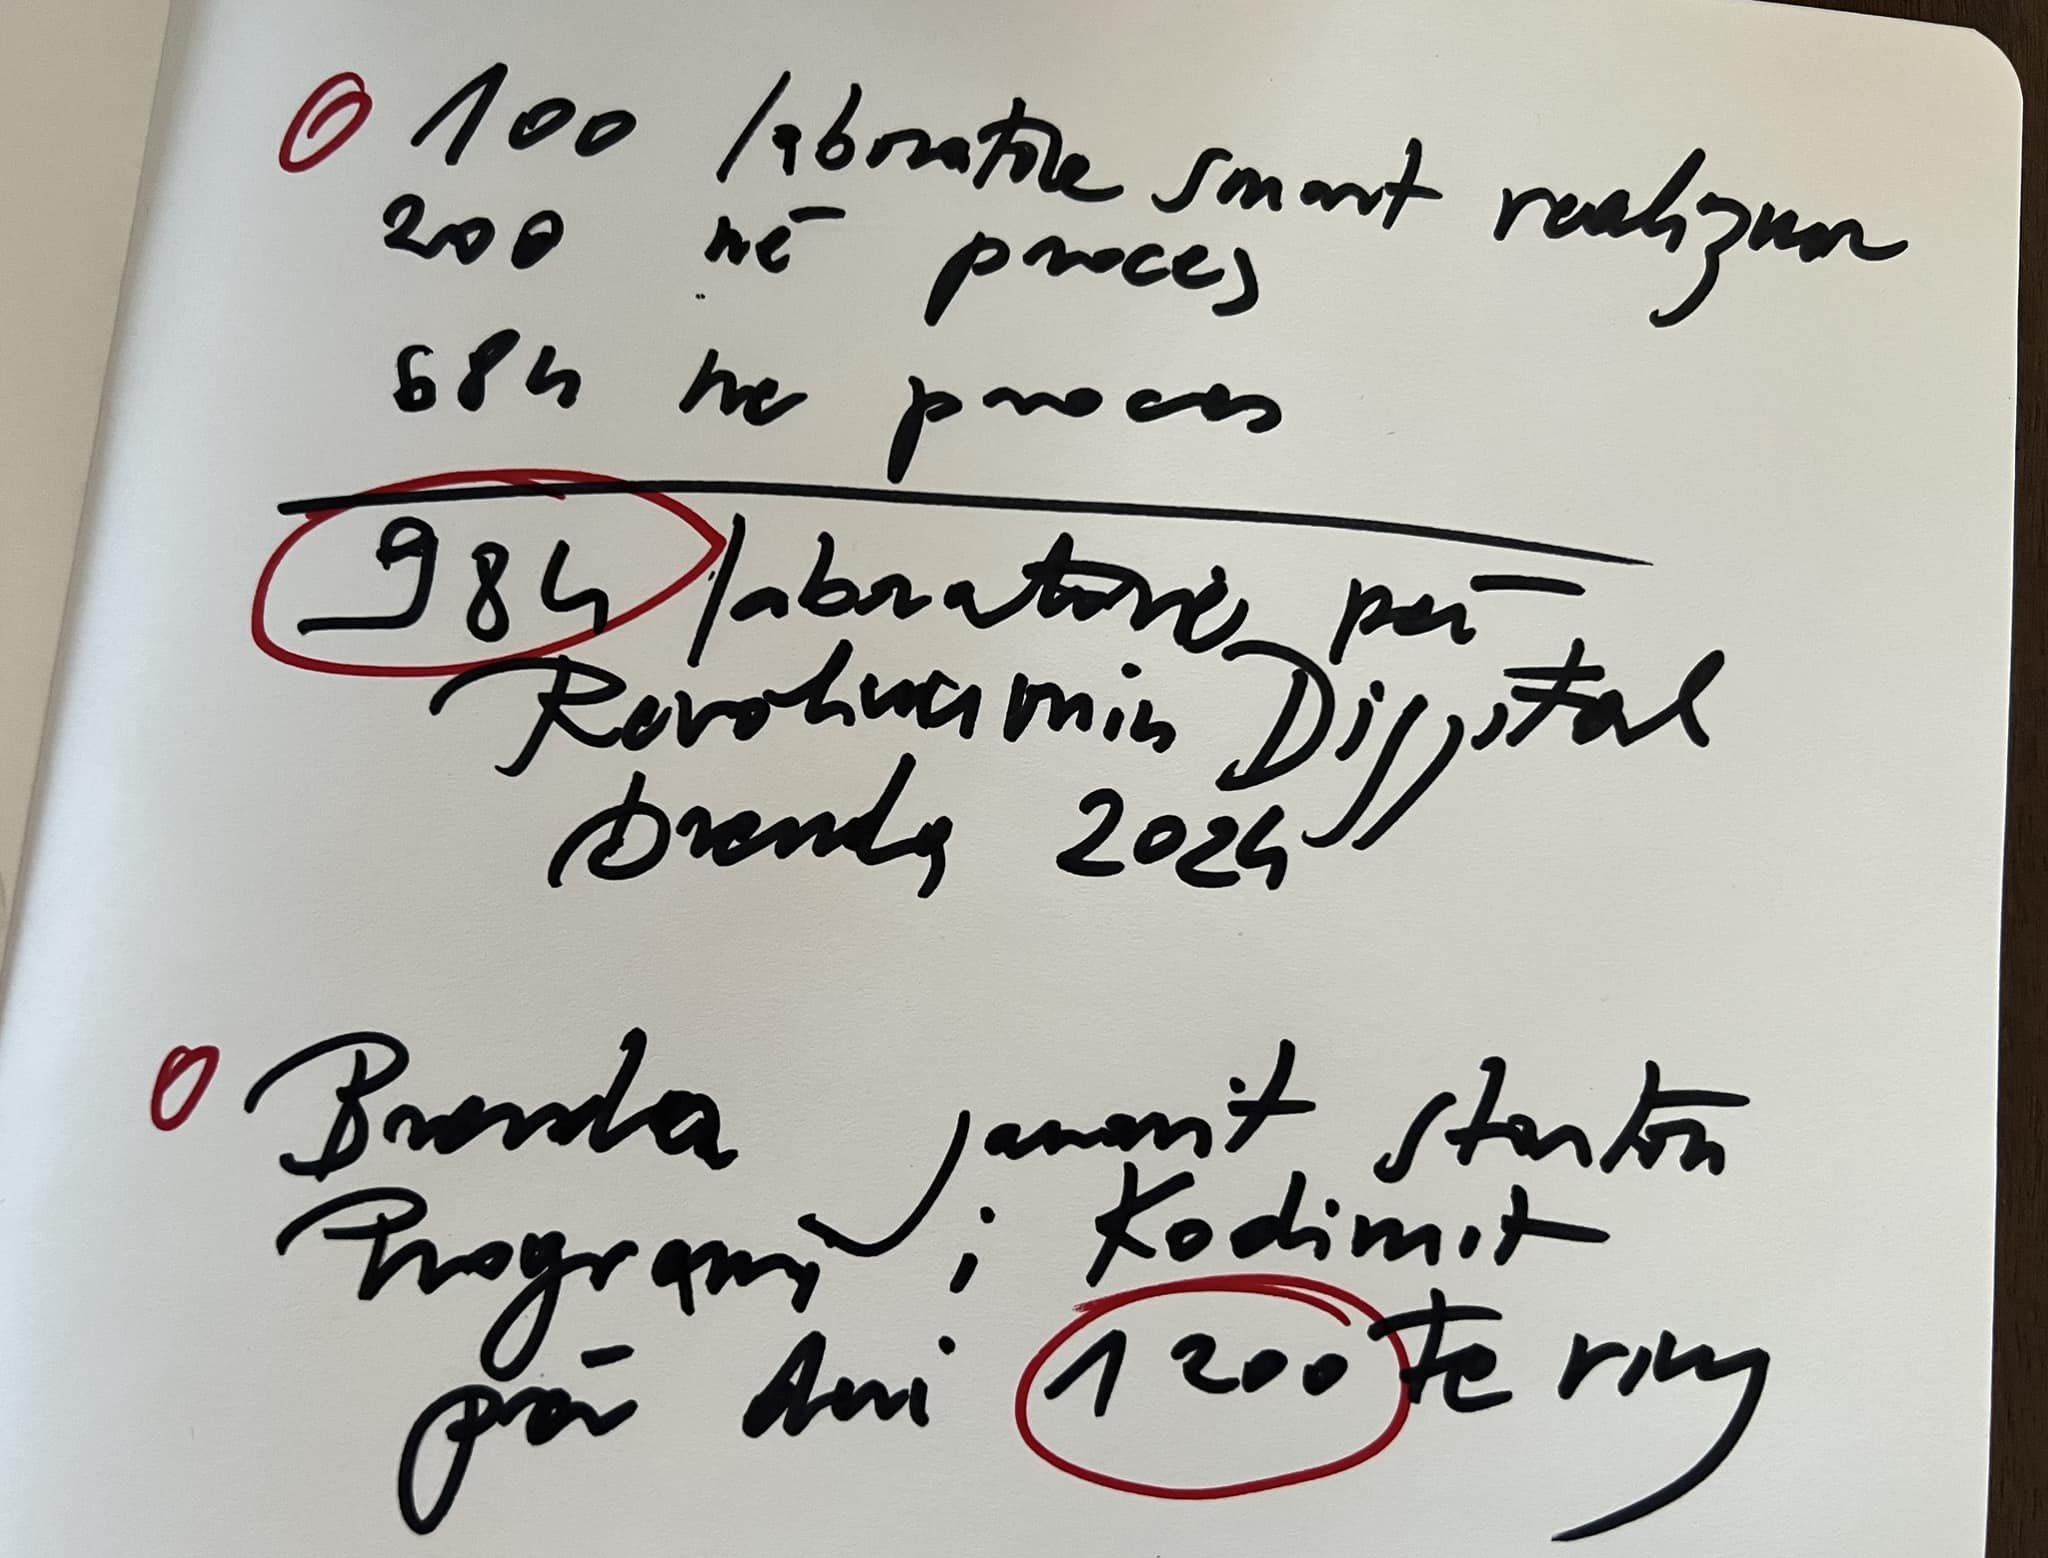 100 laboratore smart realizuar
200 në proces
684 ne proces
984 laboratorë për
Revolucionin Digjital
Brenda 2024
Brenda janarit starton
Programi i Kodimit
për dhe 1200 te rinj